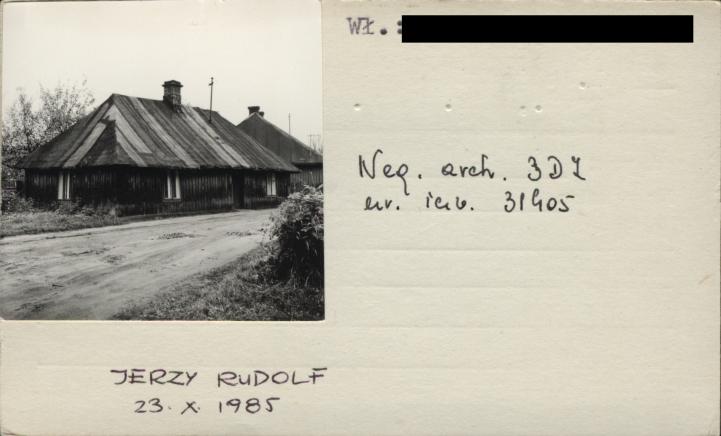 Wł.:
Neg. arch. BDZ
nr. inw. 31405
JERZY RUDOLF
23. X. 1985